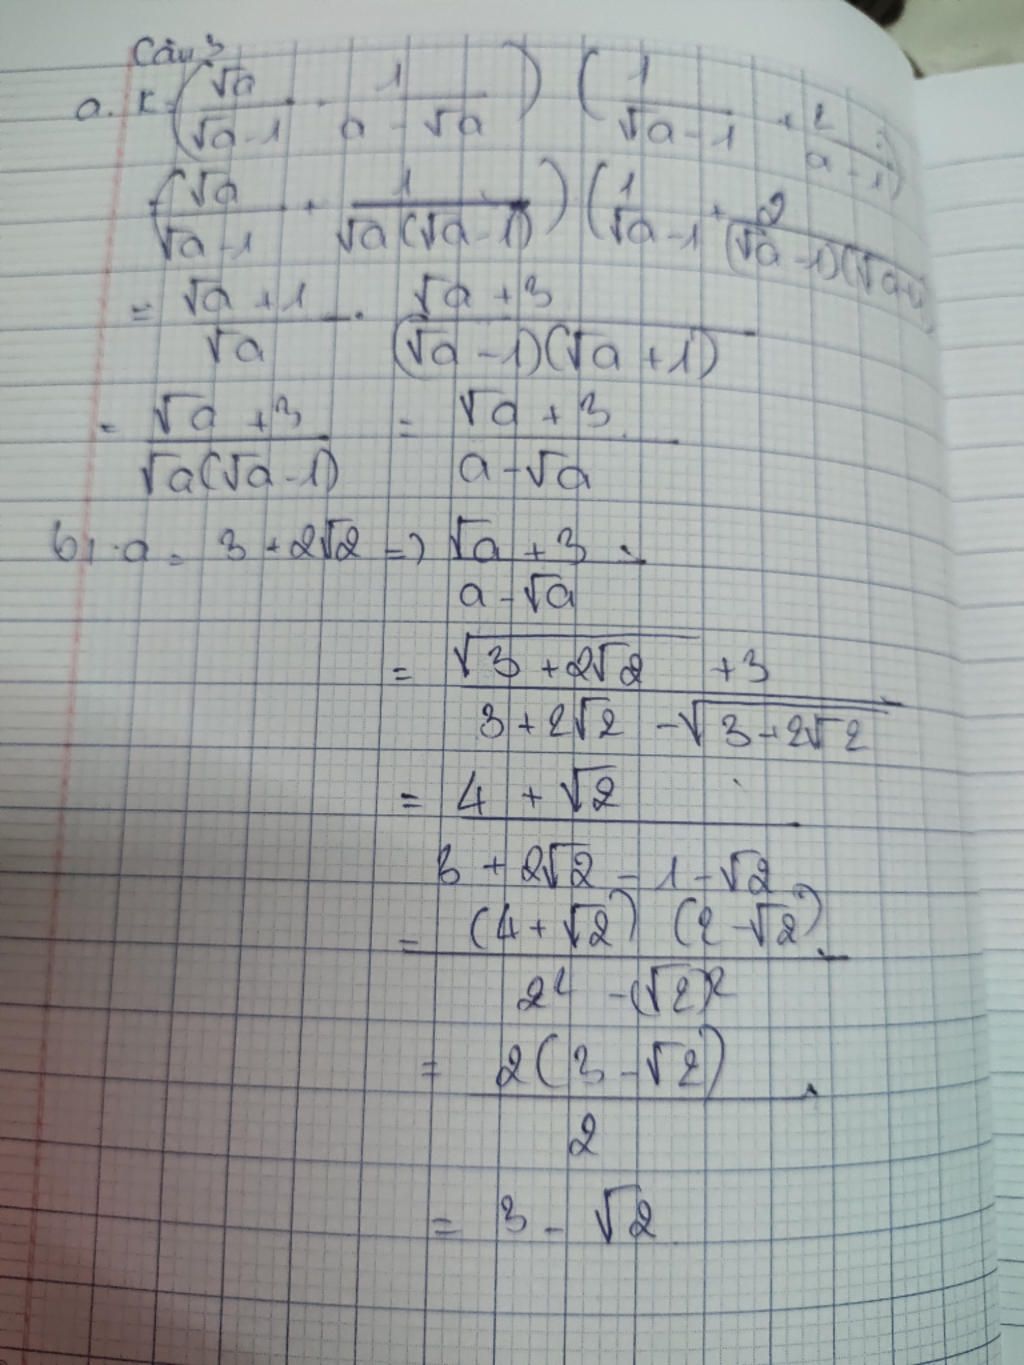 Câu 3
a. K = (√a/(√a-1) - 1/(a-√a)) (1/(√a-1) + 2/(a-1))
(√a/(√a-1) + 1/(√a(√a-1))) (1/(√a-1) + 2/((√a-1)(√a+1)))
= (√a+1)/√a . (√a+3)/((√a-1)(√a+1))
= (√a+3)/(√a(√a-1)) = (√a+3)/(a-√a)
b, a = 3+2√2 => (√a+3)/(a-√a)
= (√(3+2√2) +3)/(3+2√2 -√(3+2√2))
= (4+√2)/(3+2√2-1-√2)
= (4+√2)(2-√2)/(2²-(√2)²)
= 2(3-√2)/2
= 3-√2